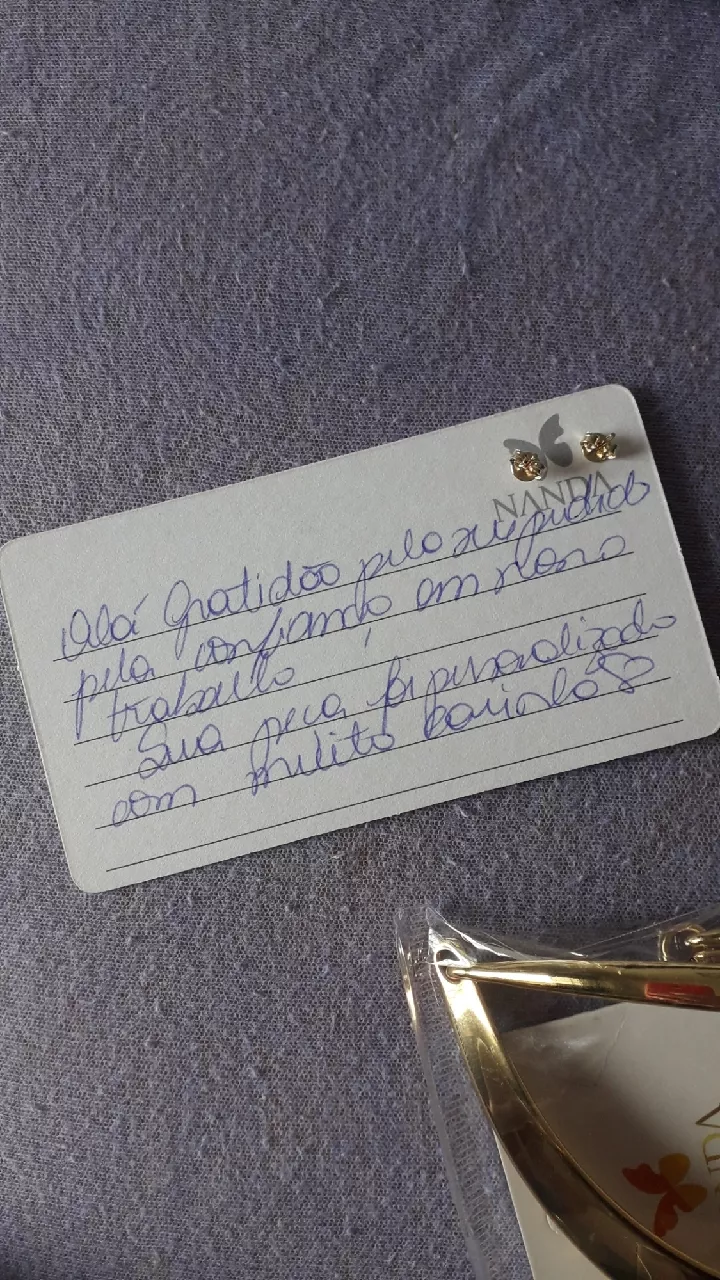 NANDA
Olá Gratidão pelo seu pedido
pela confiando em nosso
trabalho
Sua peça foi personalizado
com muito carinho